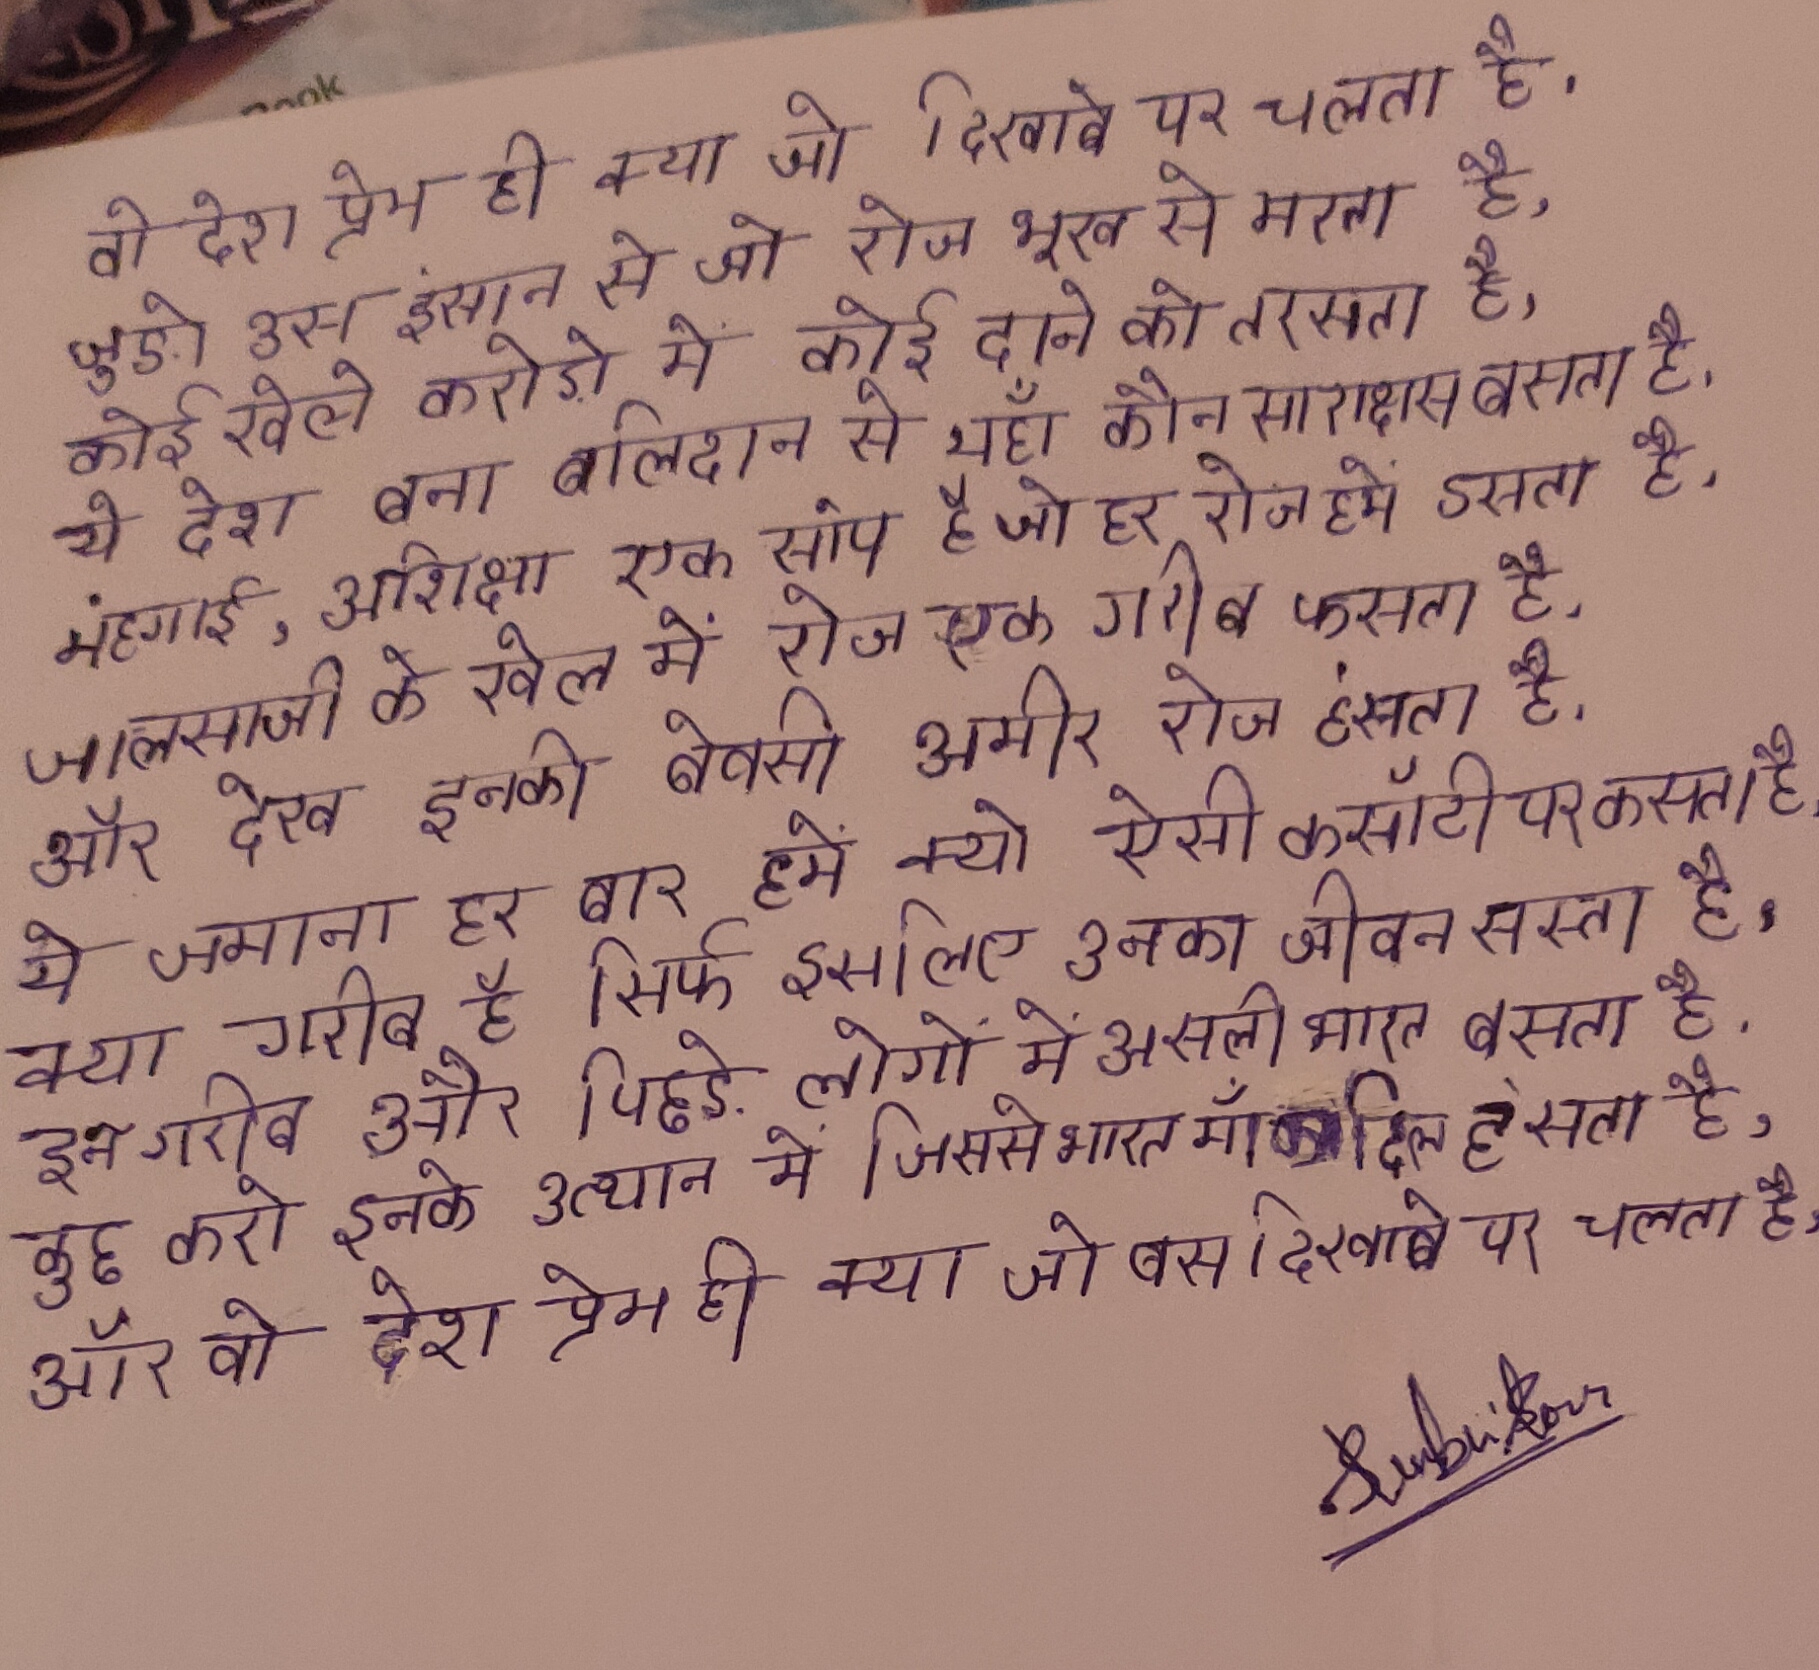 ook
वो देश प्रेम ही क्या जो दिखावे पर चलता है,
जुडो उस इंसान से जो रोज भूख से मरता है,
कोई खेले करोडो में कोई दाने को तरसता है,
ये देश बना बलिदान से यहाँ कौन सा राक्षस बसता है,
मंहगाई, अशिक्षा एक सांप है जो हर रोज हमें डसता है,
जालसाजी के खेल में रोज एक गरीब फसता है,
और देख इनकी बेबसी अमीर रोज हंसता है,
ये जमाना हर बार हमें क्यो ऐसी कसौटी पर कसता है,
क्या गरीब है सिर्फ इसलिए उनका जीवन सस्ता है,
इन गरीब और पिछडे लोगों में असली भारत बसता है,
कुछ करो इनके उत्थान में जिससे भारत माँ का दिल हंसता है,
और वो देश प्रेम ही क्या जो बस दिखावे पर चलता है,